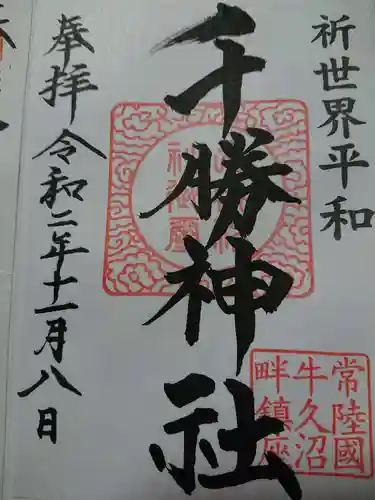 祈世界平和
千勝神社
奉拝 令和二年十一月八日
常陸國
牛久沼
畔鎮座